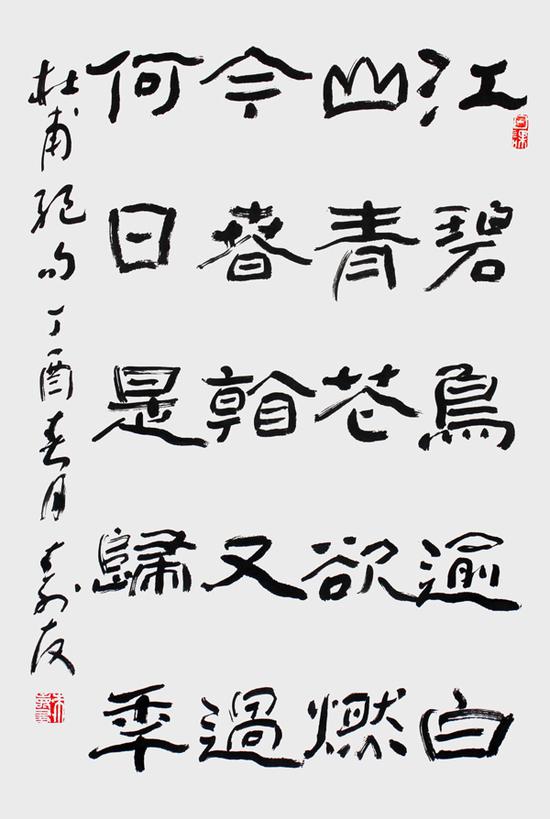 江碧鳥逾白
山青花欲燃
今春看又過
何日是歸年
杜甫絕句丁酉春月寿友